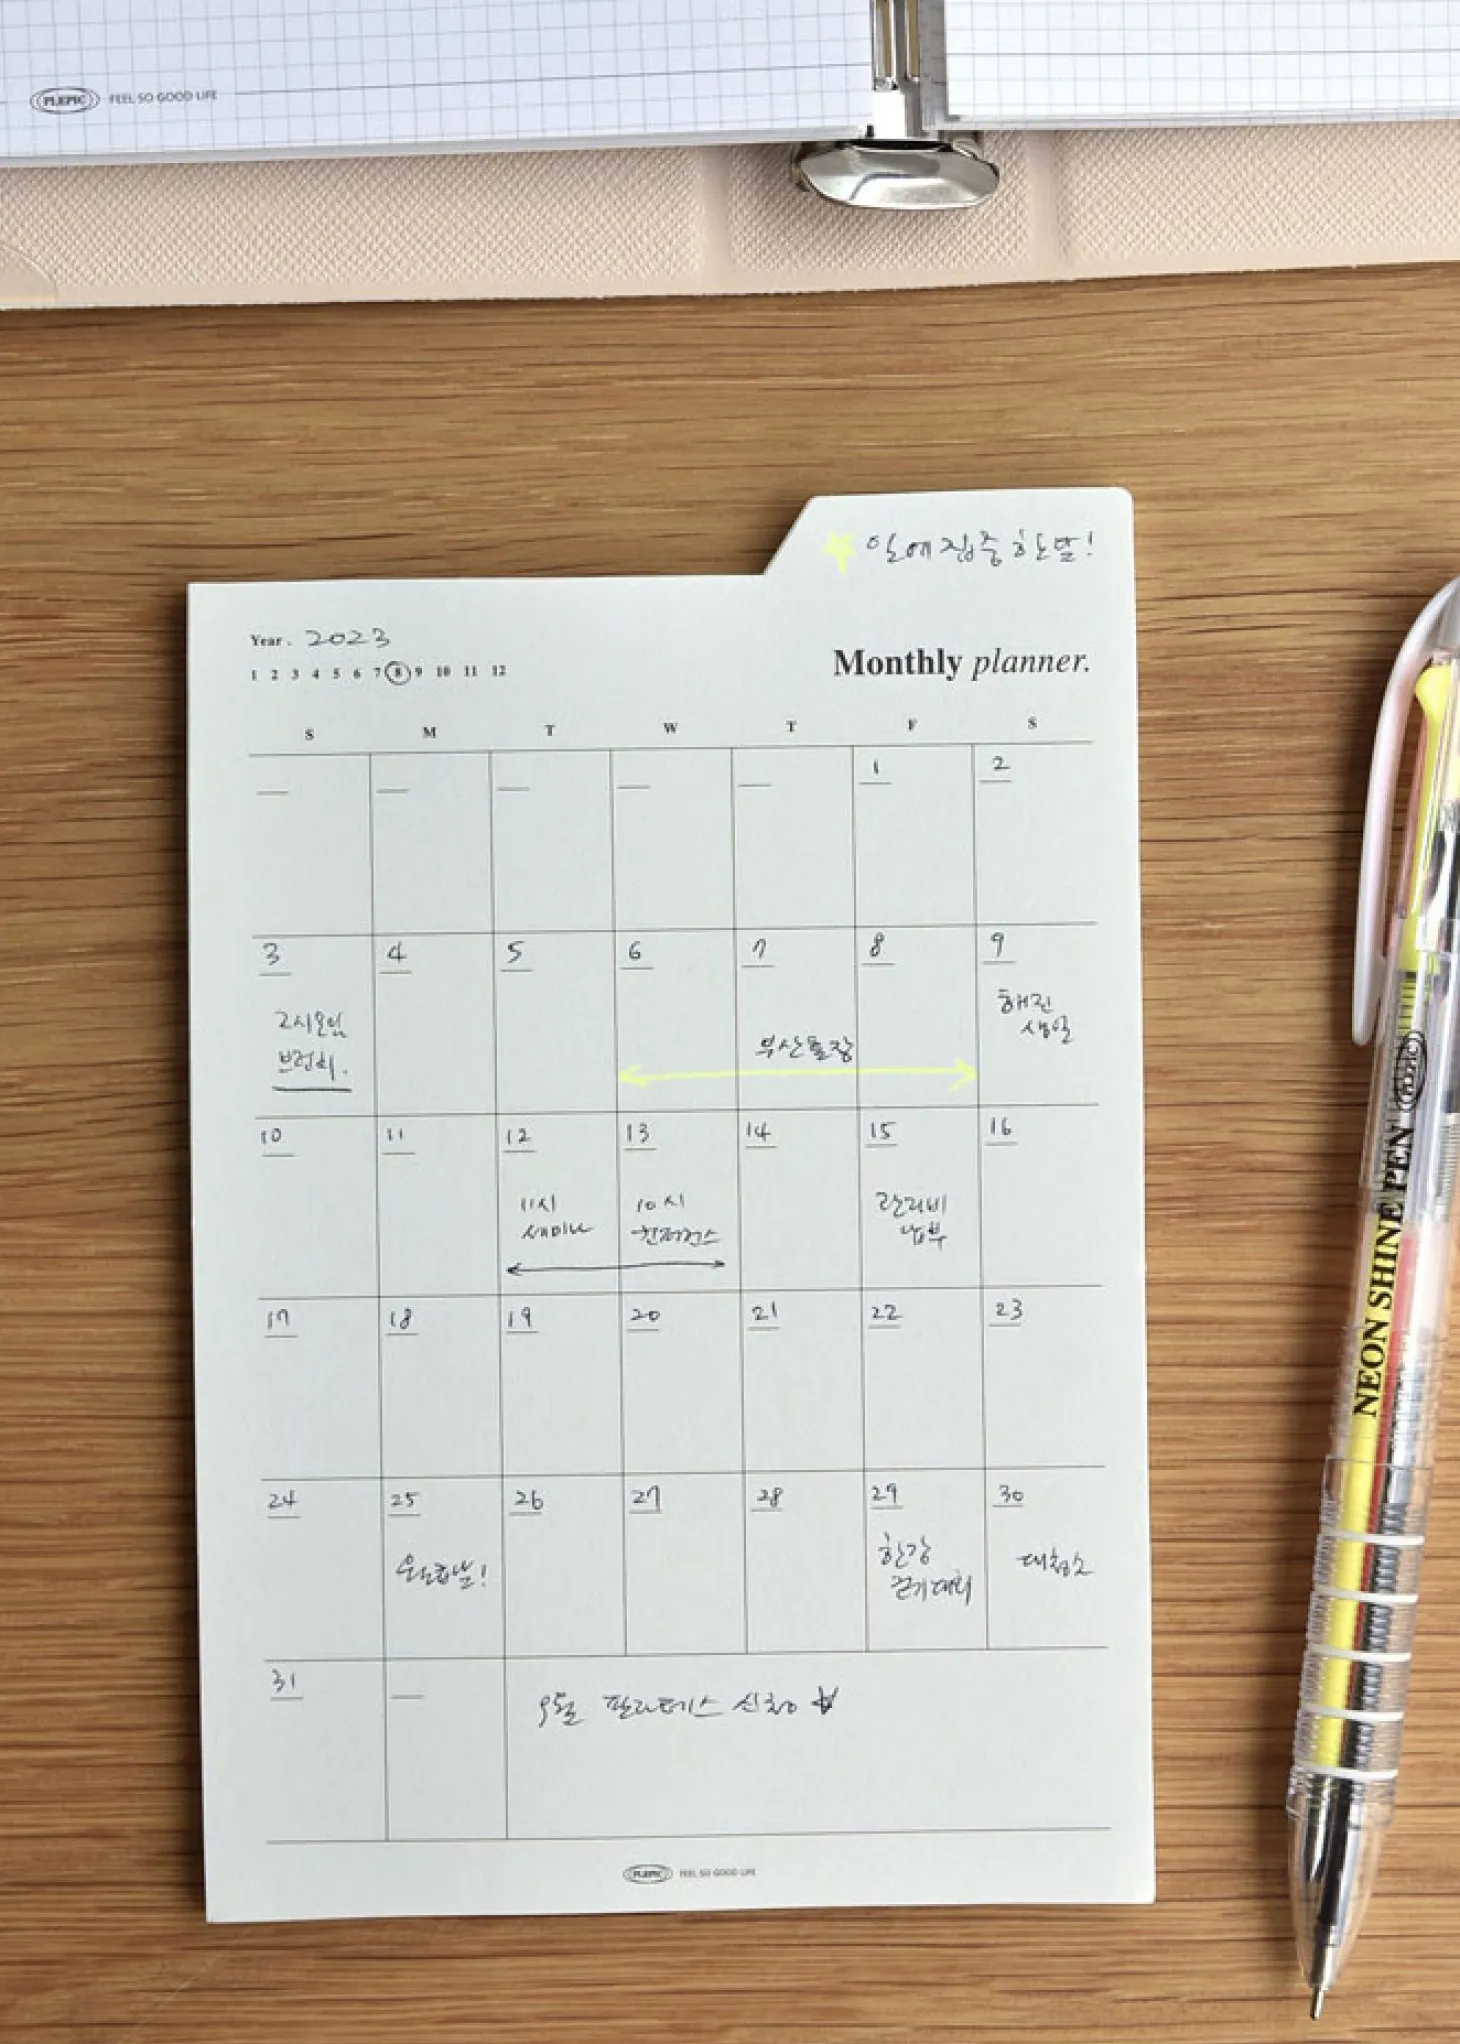 PLEPIC FEEL SO GOOD LIFE
일에 집중 한 달!
Year. 2023
1 2 3 4 5 6 7 8 9 10 11 12
Monthly planner.
S M T W T F S
1 2
3 4 5 6 7 8 9
2시모임
브런치.
부산출장
해진
생일
10 11 12 13 14 15 16
11시
세미나
10시
컨퍼런스
관리비
납부
17 18 19 20 21 22 23
24 25 26 27 28 29 30
월급날!
한강
걷기대회
대청소
31
9월 필라테스 신청
PLEPIC FEEL SO GOOD LIFE
NEON SHINE PEN PLEPIC